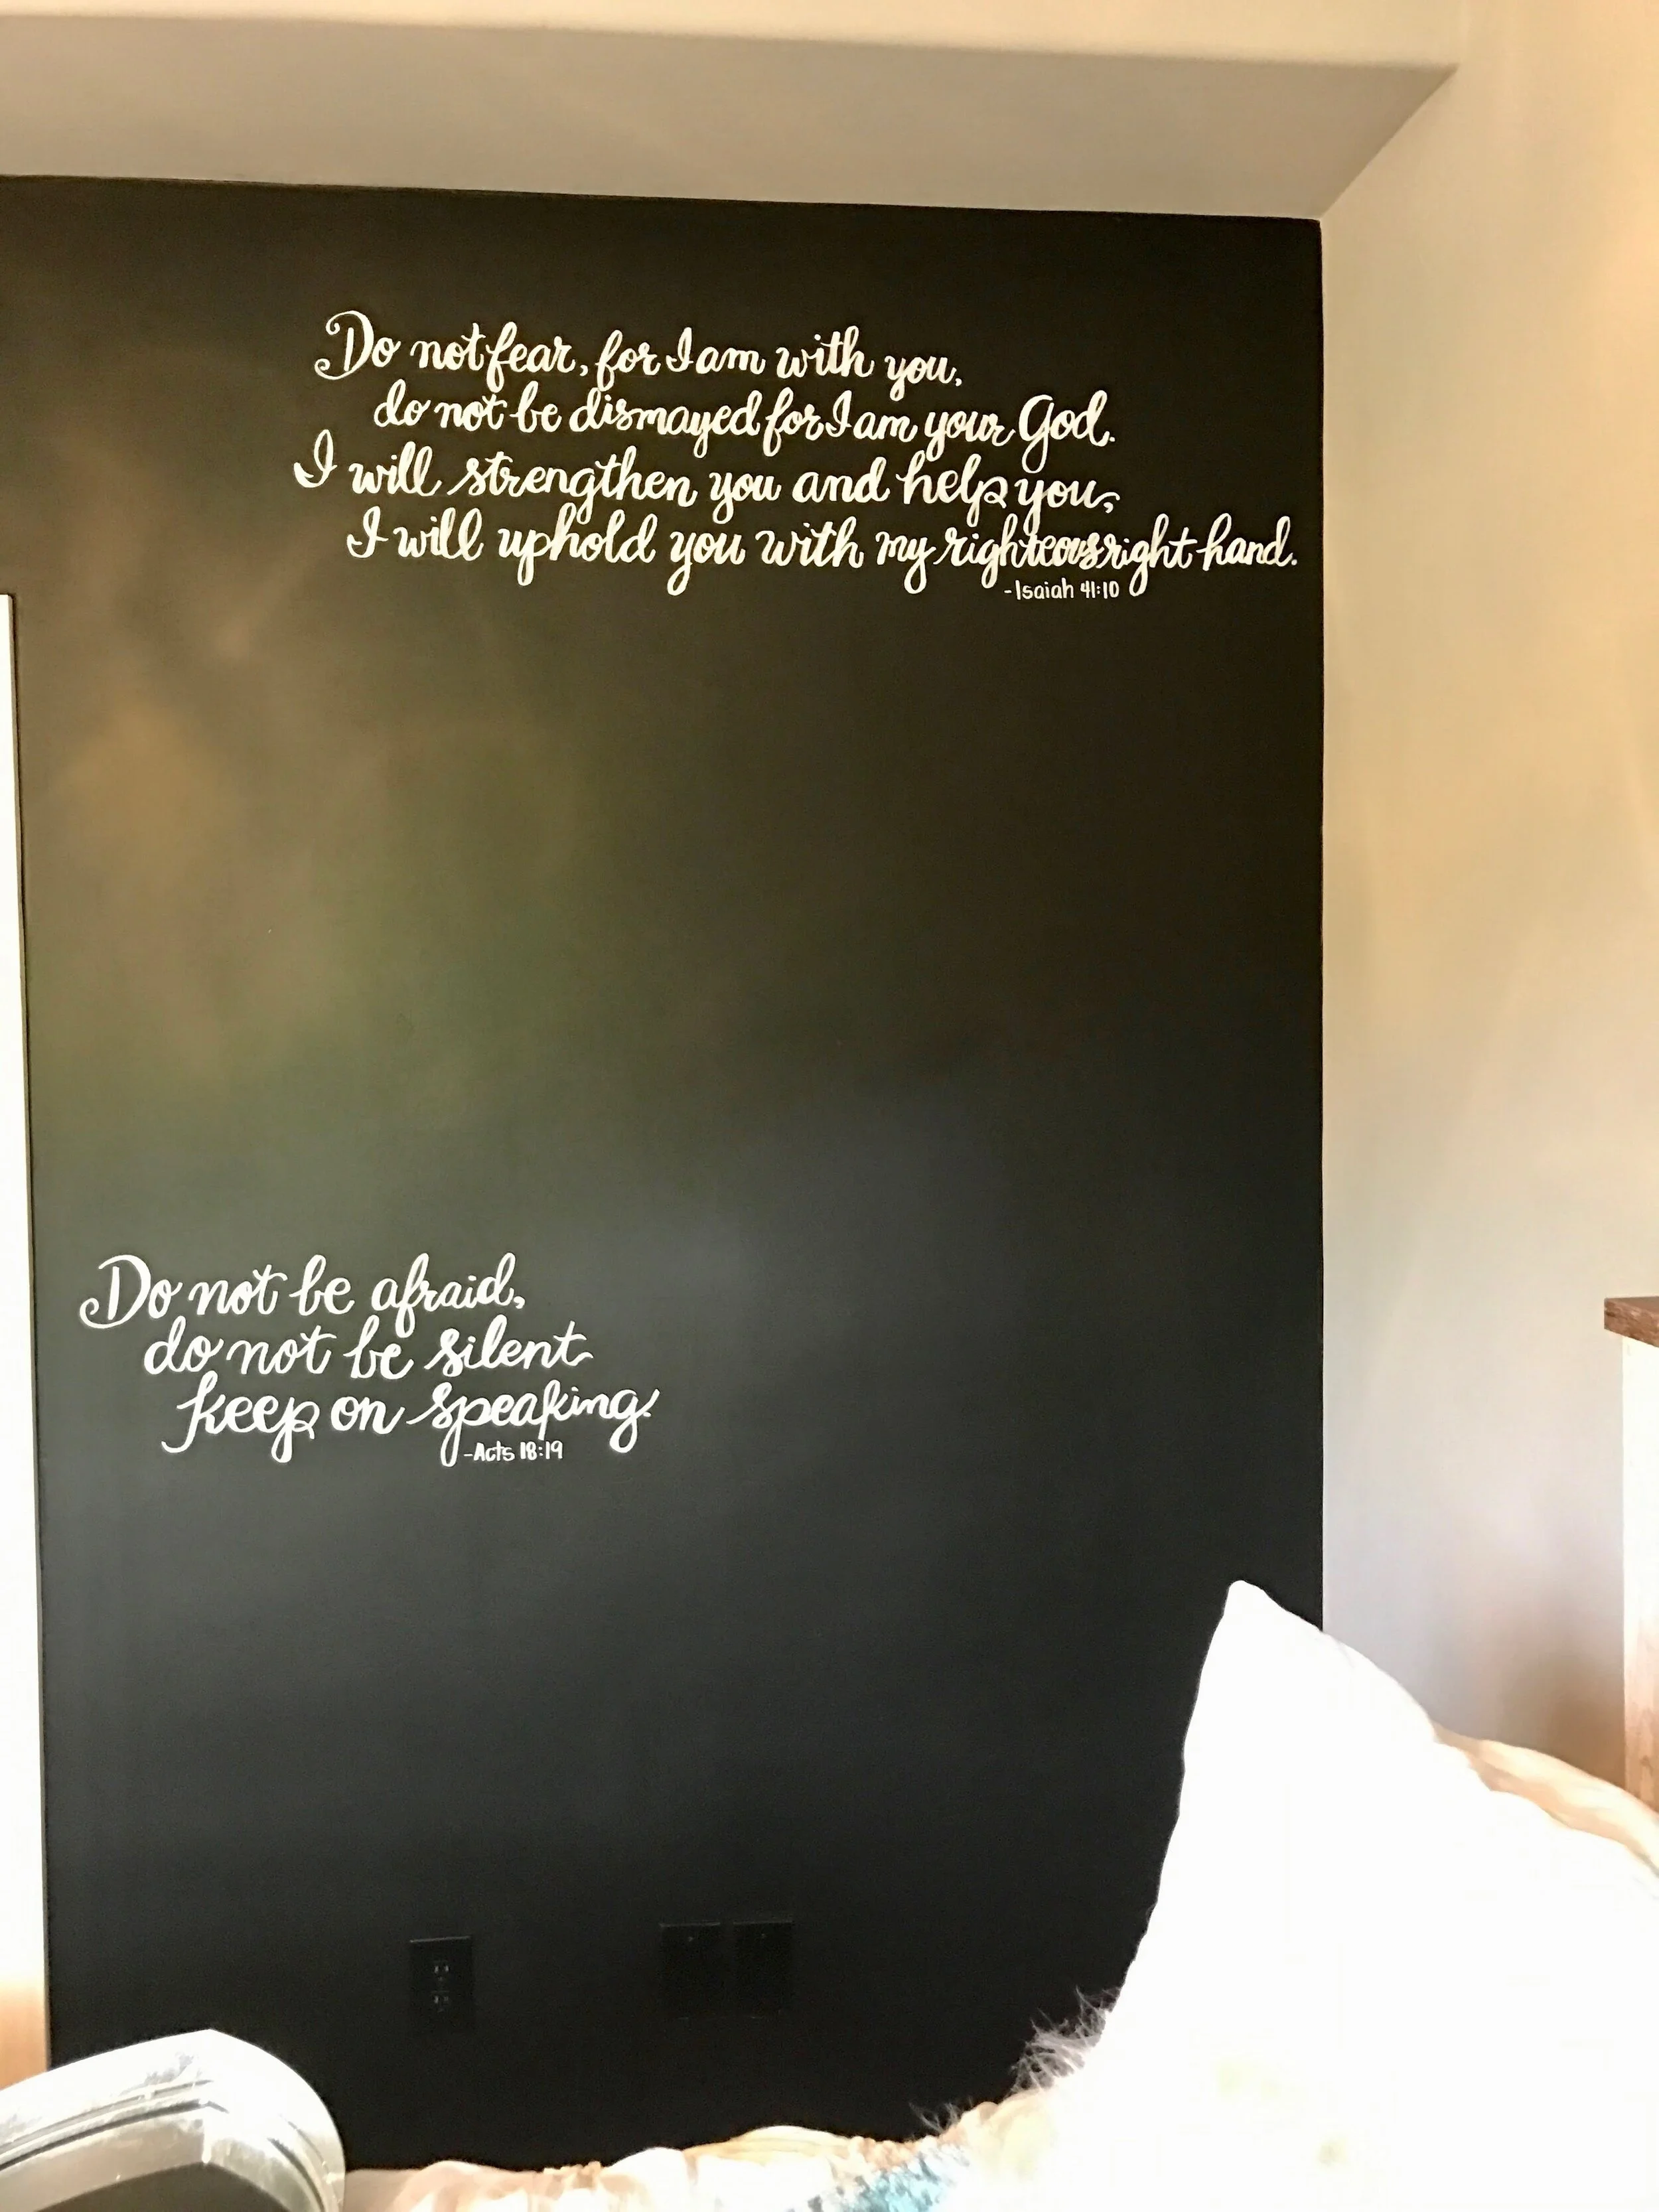 Do not fear, for I am with you,
do not be dismayed for I am your God.
I will strengthen you and help you,
I will uphold you with my righteous right hand.
-Isaiah 41:10
Do not be afraid,
do not be silent
keep on speaking.
-Acts 18:19